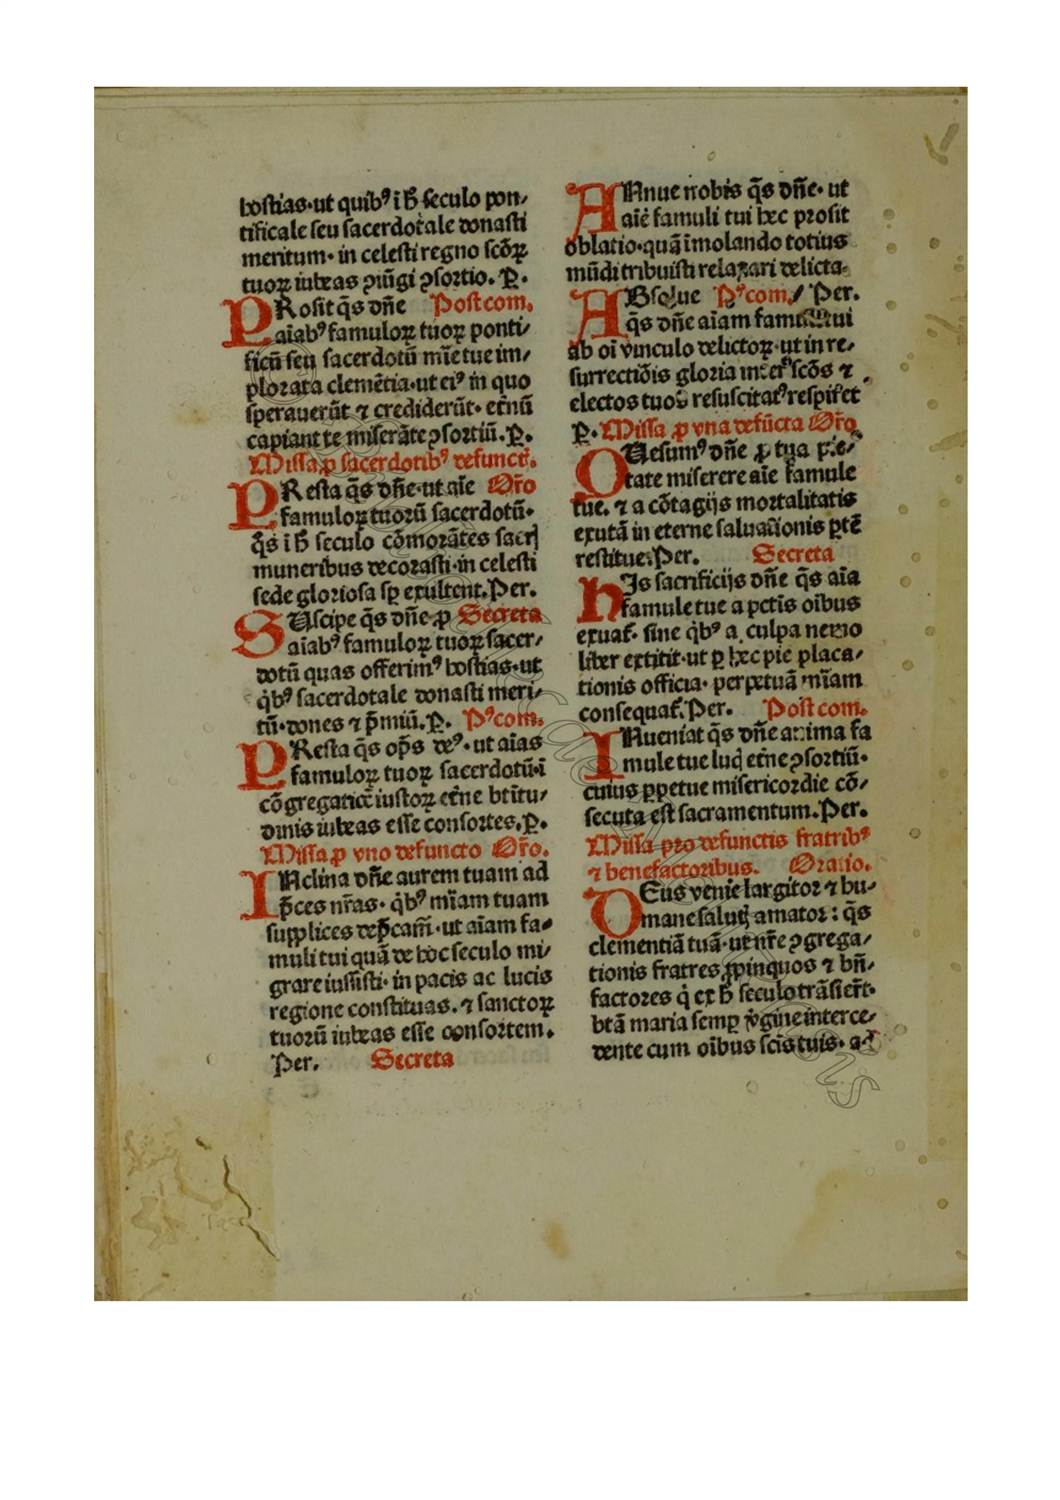 hostias·ut quibꝰ ī h̄ seculo pon⸗
tificale seu sacerdotale donasti
meritum· in celesti regno scōꝝ
tuoꝝ iubeas ꝯiūgi ꝯsortio. P̱.
PRosit q̄s dn̄e Postcom.
aīabꝰ famuloꝝ tuoꝝ ponti⸗
ficū seu sacerdotū mīe tue im⸗
plorata clemētia·ut eiꝰ in quo
sperauerūt ⁊ crediderūt· etn̄ū
capiant te miserāte ꝯsortiū. P̱.
Missa ꝓ sacerdotibꝰ defunct̄.
PResta q̄s dn̄e·ut aīe Or̄o
famuloꝝ tuorū sacerdotū·
q̄s ī h̄ seculo cōmorātes sacrꝭ
muneribus decorasti·in celesti
sede gloriosa sꝑ exultent. Per.
SUscipe q̄s dn̄e ꝓ Secreta
aīabꝰ famuloꝝ tuoꝝ sacer⸗
dotū quas offerimꝰ hostias·ut
q̇bꝰ sacerdotale donasti meri⸗
tū·dones ⁊ p̄miū. P̱. Pꝰcom.
PResta q̄s op̄s deꝰ·ut aīas
famuloꝝ tuoꝝ sacerdotū·ī
cōgregatiōe iustoꝝ etn̄e btītu⸗
dinis iubeas esse consortes. P̱.
Missa ꝓ vno defuncto Or̄o.
INclina dn̄e aurem tuam ad
p̄ces nr̄as· q̇bꝰ mīam tuam
supplices dep̄cam̄·ut aīam fa⸗
muli tui quā de hoc seculo mi⸗
grare iussisti· in pacis ac lucis
regione constituas. ⁊ sanctoꝝ
tuorū iubeas esse consortem.
Per. Secreta
ANnue nobis q̄s dn̄e· ut
aīe famuli tui hec prosit
oblatio·quā īmolando totius
mūdi tribuisti relaxari delicta·
ABsolue Pꝰcom. Per.
q̄s dn̄e aīam famuli tui
ab oī vinculo delictoꝝ·ut in re⸗
surrectiōis gloria inter scōs ⁊
electos tuos resuscitatꝰ respiret
P̱. Missa ꝓ vna defūcta Or̄o.
QUesumꝰ dn̄e ꝓ tua pie⸗
tate miserere aīe famule
tue. ⁊ a cōtagijs mortalitatis
exutā in eterne saluationis ꝑtē
restitue. Per. Secreta
hIs sacrificijs dn̄e q̄s aīa
famule tue a pctīs oībus
exuat̄· sine q̇bꝰ a culpa nemo
liber extitit·ut ꝑ hec pie placa⸗
tionis officia· perpetuā mīam
consequat̄. Per. Postcom.
INueniat q̄s dn̄e anima fa
mule tue lucꝭ etn̄e ꝯsortiū·
cuius ꝑpetue misericordie cō⸗
secuta est sacramentum. Per.
Missa pro defunctis fratribꝰ
⁊ benefactoribus. Oratio.
DEus venie largitor ⁊ hu⸗
mane salutꝭ amator : q̄s
clementiā tuā·ut nr̄e ꝯgrega⸗
tionis fratres ꝓpinquos ⁊ bn̄⸗
factores q̇ ex h̄ seculo trāsier̄t·
btā maria semꝑ v̇gine interce⸗
dente cum oībus scīs tuis· ad